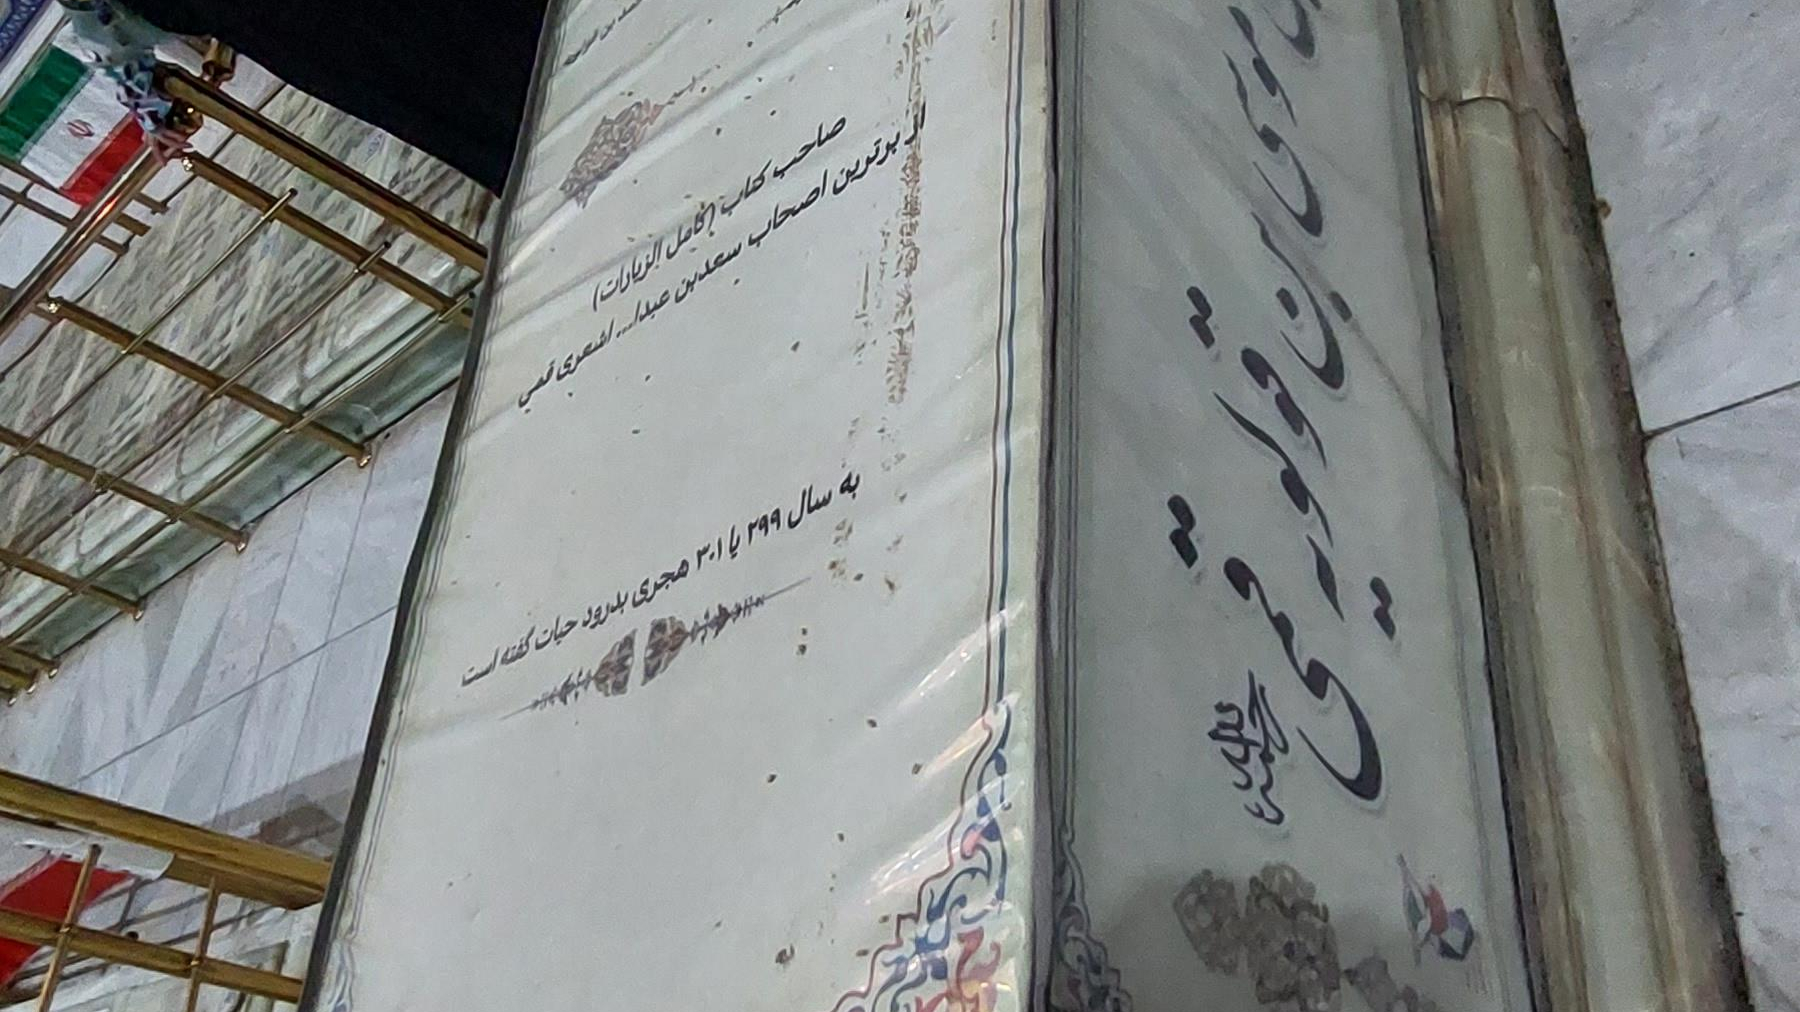 صاحب کتاب (کامل الزیارات)
از برترین اصحاب سعدبن عبدا... اشعری قمی
به سال ۲۹۹ یا ۳۰۱ هجری بدرود حیات گفته است
موسی بن قولویه قمی
رحمة الله علیه